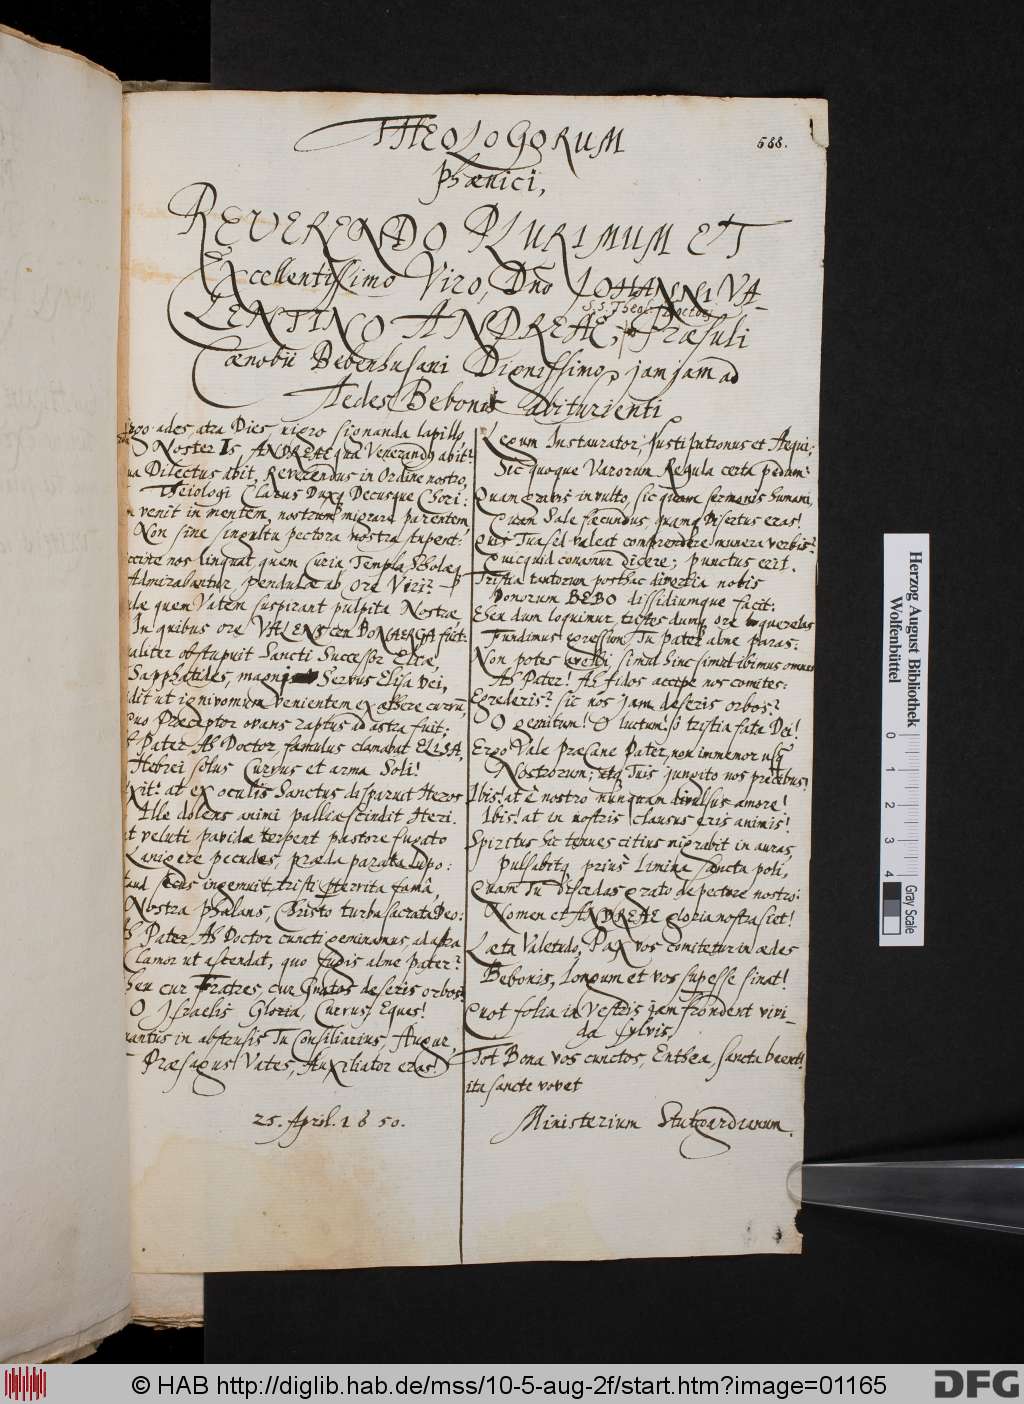 THEOLOGORUM
588.
Phœnici,
REVERENDO PLURIMUM ET
Excellentissimo Viro, Dno JOHANNI VA-
S.S. Theol. Doctori
LENTINO ANDREAE, Præsuli
Cœnobii Bebenhusani Dignissimo, jam jam ad
Aedes Bebonis abiturienti
ades, atra Dies, nigro signanda lapillo,
Noster Is, ANDREAE qua Venerandus abit?
Dilectus abit, Reverendus in Ordine nostro,
Theiologi Clarus Dux Decusque Chori:
venit in mentem, nostrum migrare parentem,
Non sine singultu pectora nostra stupent.
nos linquat, quem Curia, Templa, Scholæq
Admirabantur, pendulæ ab Ore Viri?
quem Vatem suspirant pulpita Nostra,
In quibus ore VALENS ceu BONAERGA fuit.
aliter obstupuit Sancti Successor Eliæ,
Sapphatides, magni Servus Elisa Dei,
ut ignivomum venientem ex æthere currum,
quo Præceptor ovans raptus ad astra fuit;
Pater, Ah Doctor, famulus clamabat ELISA,
Hebrei solus Currus et arma Soli!
at ex oculis Sanctus disparuit Heros
Ille dolens animi pallia scindit Heri.
veluti pavidæ torpent pastore fugato
Lanigeræ pecudes, præda parata lupo:
secus ingemuit tristi perterrita famâ,
Nostra phalans, Christo turba sacrata Deo:
Pater, Ah Doctor cuncti geminamus, ad astra
Clamor ut ascendat, quo fugis alme pater?
cur Fratres, cur Gnatos deseris orbos?
O Israelis Gloria, Currus, Eques!
in abstrusis Tu Consiliarius, Augur,
Præsagus Vates, Auxiliator eras!
25. April. 1650.
Legum Instaurator, Justi Intionus et Aequi;
Sic quoque Varorum Regula certa pedum:
Quam gravis in vultu, sic quoque sermonis humani,
Quam Sale fœcundus, quamq Disertus eras!
Quis Tua sed valeat comprendere munera verbis?
Quicquid conamur dicere; punctus erit.
Tristia tantorum posthac divortia nobis
Donorum BEBO dissidiumque facit.
Eheu dum loquimur, tristes dumq ore querelas
Fundimus egressum, Tu pater alme paras:
Non potes avelli, simul hinc simul ibimus omnes
Ah Pater! Ah filos accipe nos comites:
Egrederis? sic nos jam deseris orbos?
O gemitum! O luctum! si tristia fata Dei!
Ergo Vale præcline Pater, non immemor usq
Nostrorum; atq Tuis jungito nos precibus!
Ibis! at è nostro nunquam divulsus amore!
Ibis! at in nostris clausus eris animis!
Spiritus hic tenues citius migrabit in auras,
Pulsabitq prius Limina sancta poli,
Quam Tu discedas grato de pectore nostro:
Nomen et ANDREAE gloria nostra siet!
Læta Valetudo, PAX vos comitetur in ædes
Bebonis, longum et vos supesse sinat!
Quot folia in Vestris jam frondent viri-
da sylvis,
Tot Bona vos cunctos, Enthea, sancta beent!
ita sancte vovet
Ministerium Stutgardianum.
Herzog August Bibliothek
Wolfenbüttel
0 1 2 3 4
Gray Scale
© HAB http://diglib.hab.de/mss/10-5-aug-2f/start.htm?image=01165
DFG